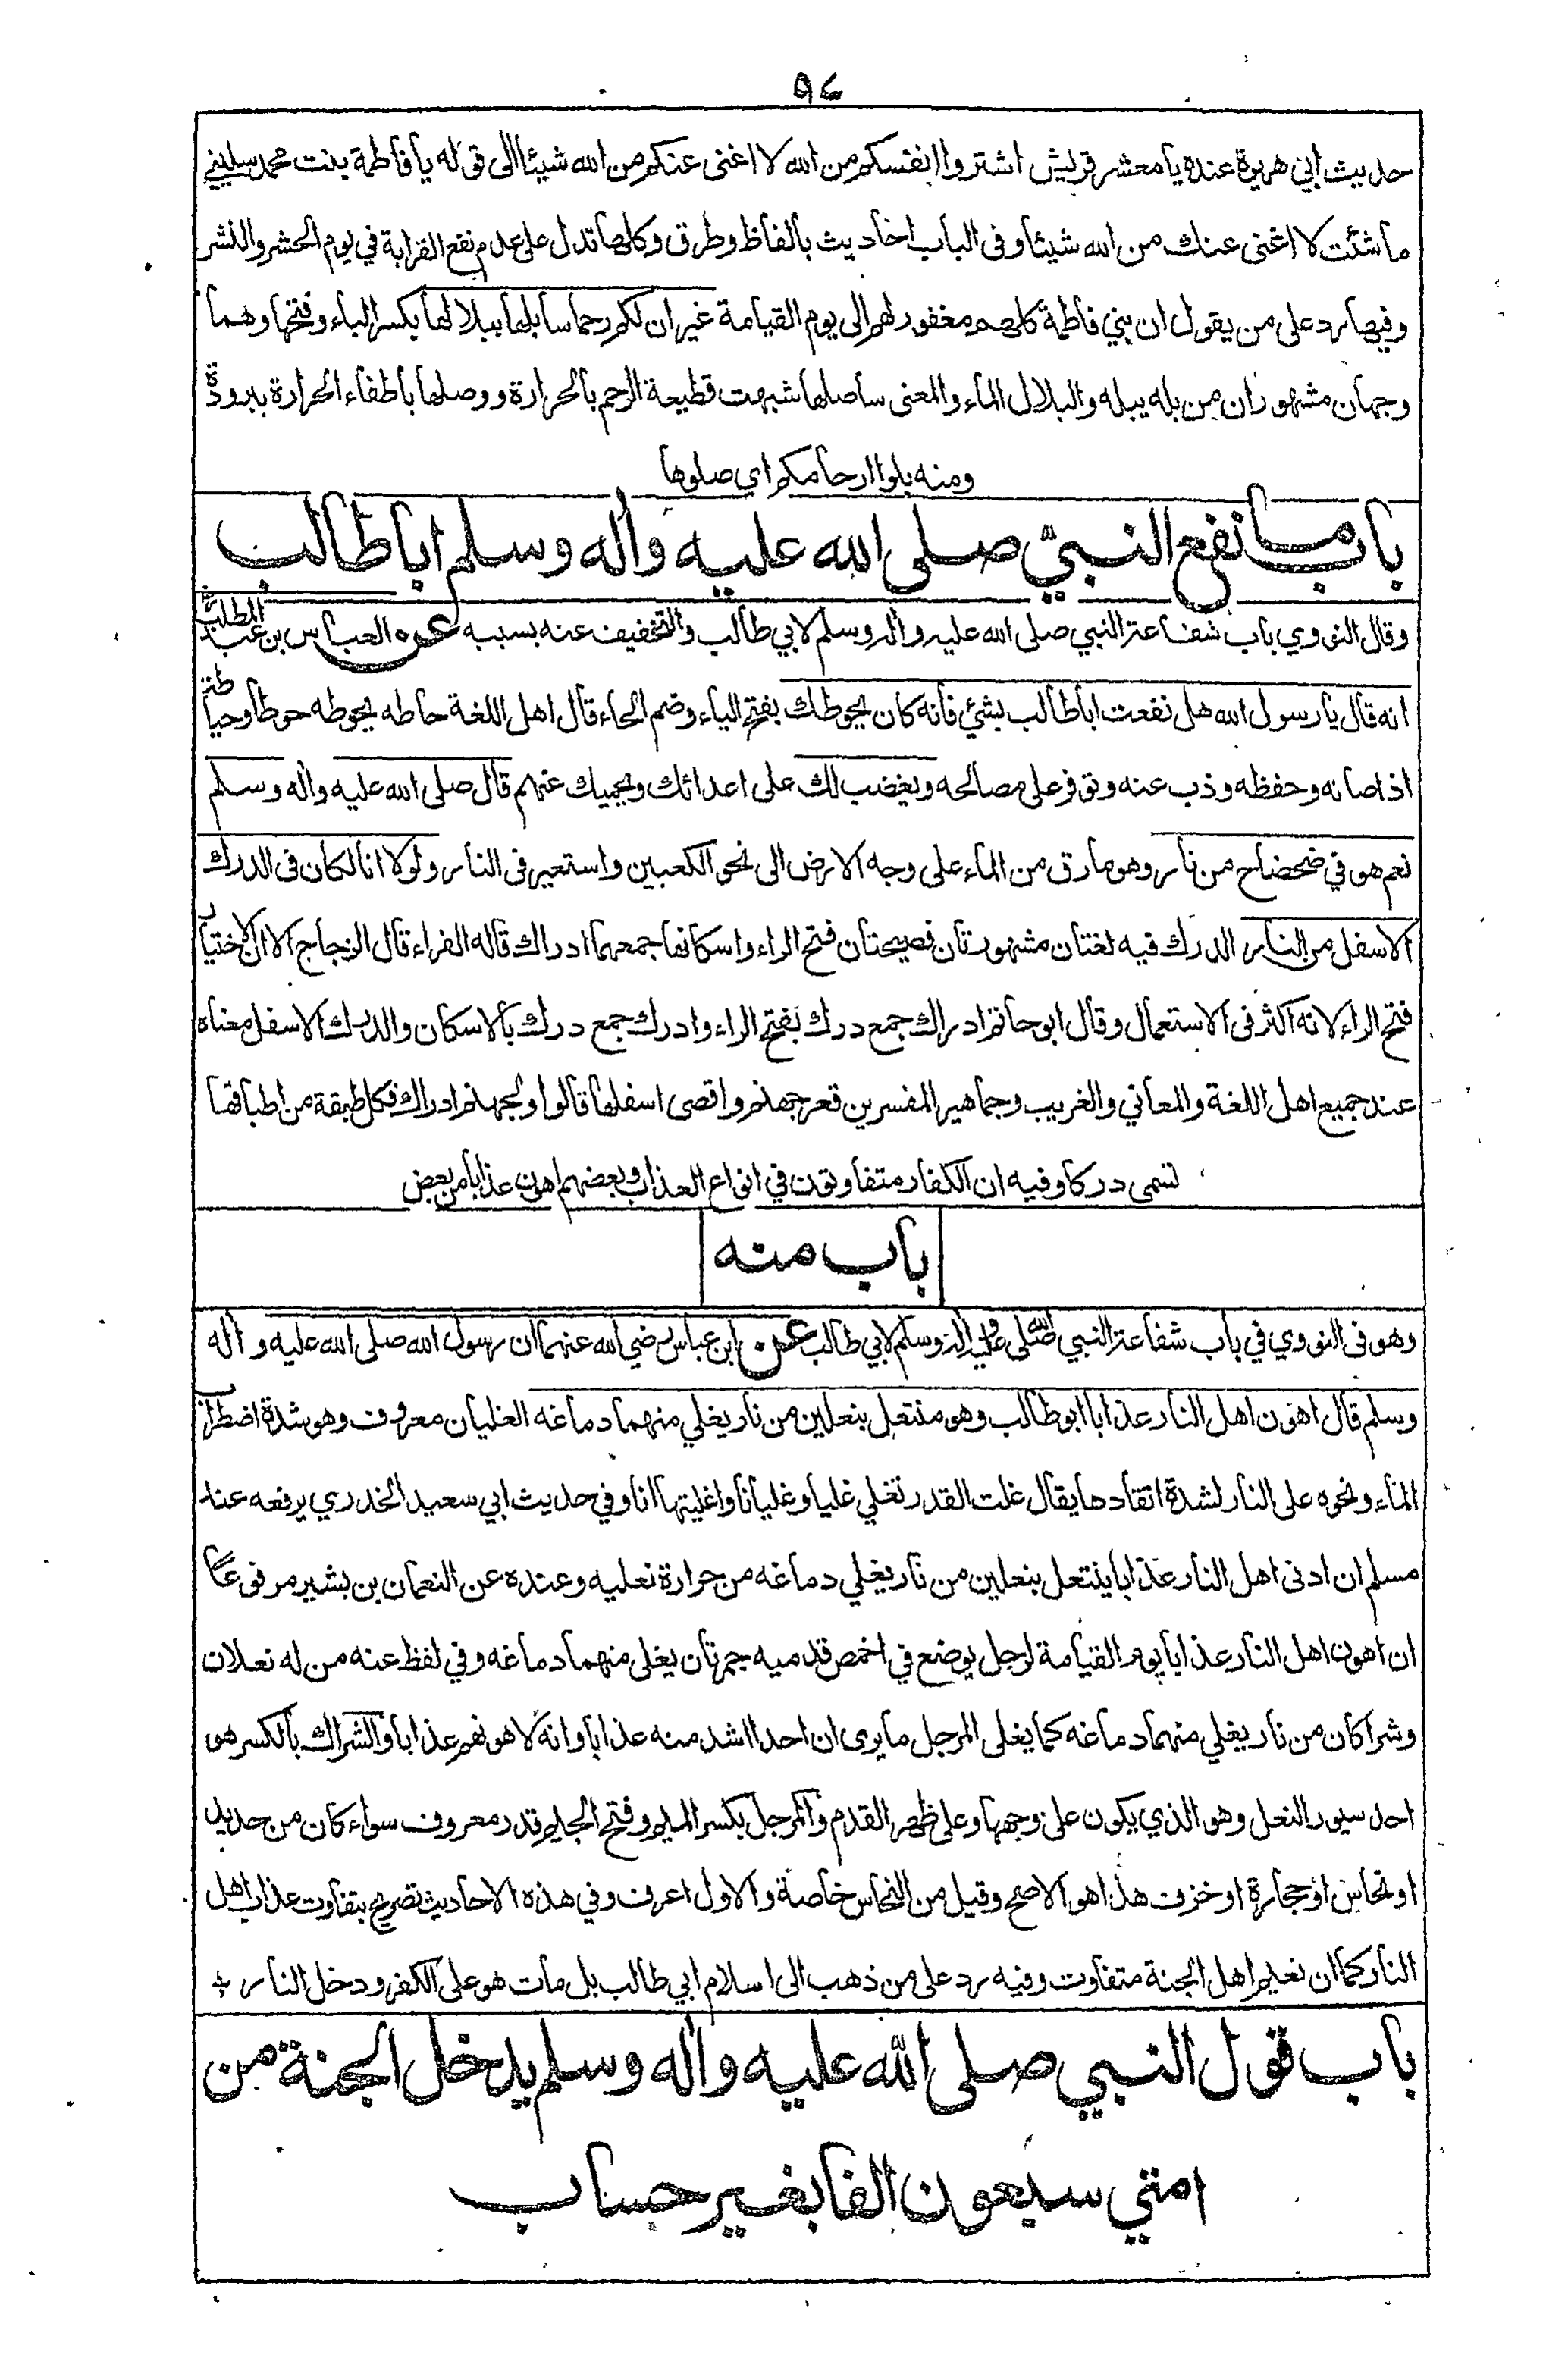 ٩٤
حديث ابي هريرة عنده يا معشر قريش اشتروا انفسكم من الله لا اغني عنكم من الله شيئا الى قوله يا فاطمة بنت محمد سليني
ما شئت لا اغنى عنك من الله شيئا وفى الباب احاديث بالفاظ وطرق وكلها تدل على عدم نفع القرابة في يوم الحشر والنشر
وفيها رد على من يقول ان بني فاطمة كلهم مغفور لهم الى يوم القيامة غير ان لكم رحما سابلها ببلالها بكسر الباء وفتحها وهما
وجهان مشهوران من بله يبله والبلال الماء والمعنى ساصلها شبهت قطيعة الرحم بالحرارة ووصلها باطفاء الحرارة ببرودة
ومنه بلوا ارحامكم اي صلوها
باب ما نفع النبي صلى الله عليه واٰله وسلم ابا طالب
وقال النووي باب شفاعة النبي صلى الله عليه واله وسلم لابي طالب والتخفيف عنه بسببه عن العباس بن عبد المطلب
انه قال يا رسول الله هل نفعت ابا طالب بشئ فانه كان يحوطك بفتح الياء وضم الحاء قال اهل اللغة حاطه يحوطه حوطا وحياطة
اذا صانه وحفظه وذب عنه وتوفر على مصالحه ويغضب لك على اعدائك ويحميك عنهم قال صلى الله عليه واٰله وسلم
نعم هو في ضحضاح من نار وهو ما رق من الماء على وجه الارض الى نحو الكعبين واستعير فى النار ولولا انا لكان فى الدرك
الاسفل من النار الدرك فيه لغتان مشهورتان فصيحتان فتح الراء واسكانها جمعهما ادراك قاله الفراء قال الزجاج الا ان الاختيار
فتح الراء لانه اكثر فى الاستعمال وقال ابو حاتم ادراك جمع درك بفتح الراء وادرك جمع درك بالاسكان والدرك الاسفل معناه
عند جميع اهل اللغة والمعاني والغريب وجماهير المفسرين قعر جهنم واقصى اسفلها قالوا ولجهنم ادراك فكل طبقة من اطباقها
تسمى دركا وفيه ان الكفار متفاوتون في انواع العذاب وبعضهم اهون عذابا من بعض
باب منه
وهو فى النووي في باب شفاعة النبي صلى الله عليه واله وسلم لابي طالب عن ابن عباس رضي الله عنهما ان رسول الله صلى الله عليه واٰله
وسلم قال اهون اهل النار عذابا ابو طالب وهو منتعل بنعلين من نار يغلي منهما دماغه الغليان معروف وهو شدة اضطراب
الماء ونحوه على النار لشدة اتقادها يقال غلت القدر تغلي غليا وغليانا واغليتها انا وفي حديث ابي سعيد الخدري يرفعه عند
مسلم ان ادنى اهل النار عذابا ينتعل بنعلين من نار يغلي دماغه من حرارة نعليه وعنده عن النعمان بن بشير مرفوعًا
ان اهون اهل النار عذابا يوم القيامة لرجل يوضع في اخمص قدميه جمرتان يغلى منهما دماغه وفي لفظ عنه من له نعلان
وشراكان من نار يغلي منهما دماغه كما يغلى المرجل ما يرى ان احدا اشد منه عذابا وانه لاهونهم عذابا والشراك بالكسر هو
احد سيور النعل وهو الذي يكون على وجهها وعلى ظهر القدم والمرجل بكسر الميم وفتح الجيم قدر معروف سواء كان من حديد
او نحاس او حجارة او خزف هذا هو الاصح وقيل من النحاس خاصة والاول اعرف وفي هذه الاحاديث تصريح بتفاوت عذاب اهل
النار كما ان نعيم اهل الجنة متفاوت وفيه رد على من ذهب الى اسلام ابي طالب بل مات هو على الكفر ودخل النار +
باب قول النبي صلى الله عليه واٰله وسلم يدخل الجنة من
امتي سبعون الفا بغير حساب